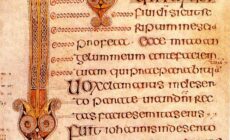 fili di sicut sc
riptum in es
profeta Ecce mitto an
gelum meum ante faciem
tuam qui praeparabit
Uox clamantis in deserto
parate uiam dni rec
tas facite semitas eius
Fuit iohannis in deser